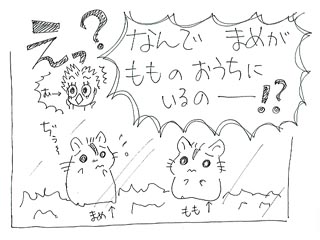 えっ?
なんで まめが
もものおうちに
いるのー!?
ぢぅ~
まめ↑
もも↑